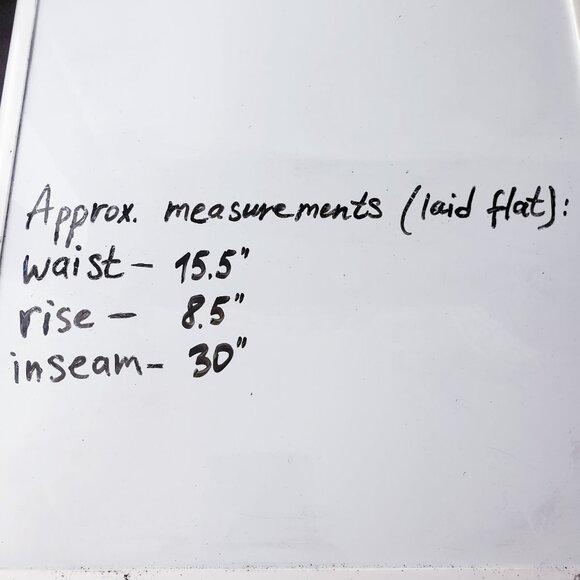 Approx. measurements (laid flat):
waist - 15.5"
rise - 8.5"
inseam - 30"